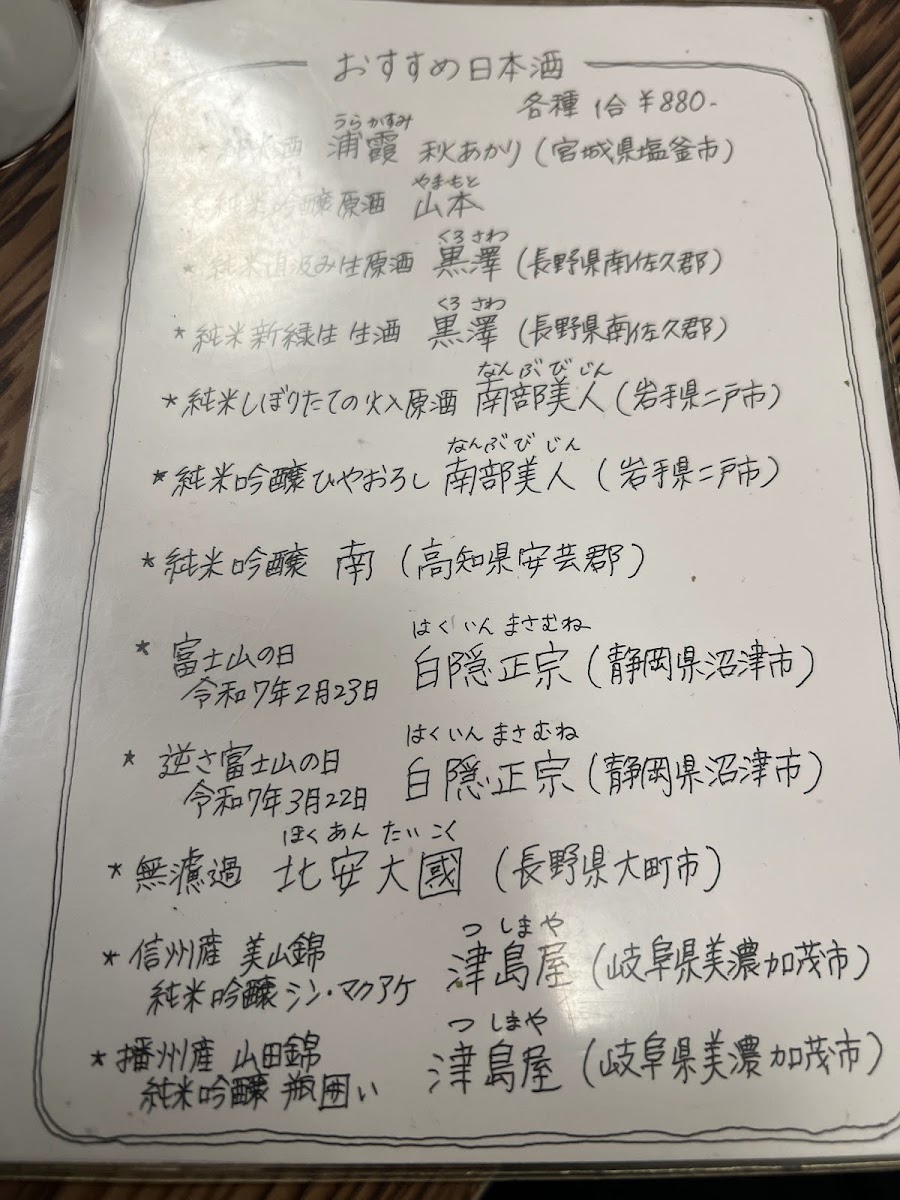 おすすめ日本酒
各種 1合 ¥880-
うらかすみ
浦霞 秋あかり (宮城県塩釜市)
やまもと
* 純米吟醸原酒 山本
くろさわ
* 純米直汲み生原酒 黒澤 (長野県南佐久郡)
くろさわ
* 純米新緑生生酒 黒澤 (長野県南佐久郡)
なんぶびじん
* 純米しぼりたての火入原酒 南部美人 (岩手県二戸市)
なんぶびじん
* 純米吟醸ひやおろし 南部美人 (岩手県二戸市)
* 純米吟醸 南 (高知県安芸郡)
はくいんまさむね
* 富士山の日 白隠正宗 (静岡県沼津市)
令和7年2月23日
はくいんまさむね
* 逆さ富士山の日 白隠正宗 (静岡県沼津市)
令和7年3月22日
ほくあんたいこく
* 無濾過 北安大國 (長野県大町市)
つしまや
* 信州産 美山錦 津島屋 (岐阜県美濃加茂市)
純米吟醸 シン・マクアケ
つしまや
* 播州産 山田錦 津島屋 (岐阜県美濃加茂市)
純米吟醸 瓶囲い